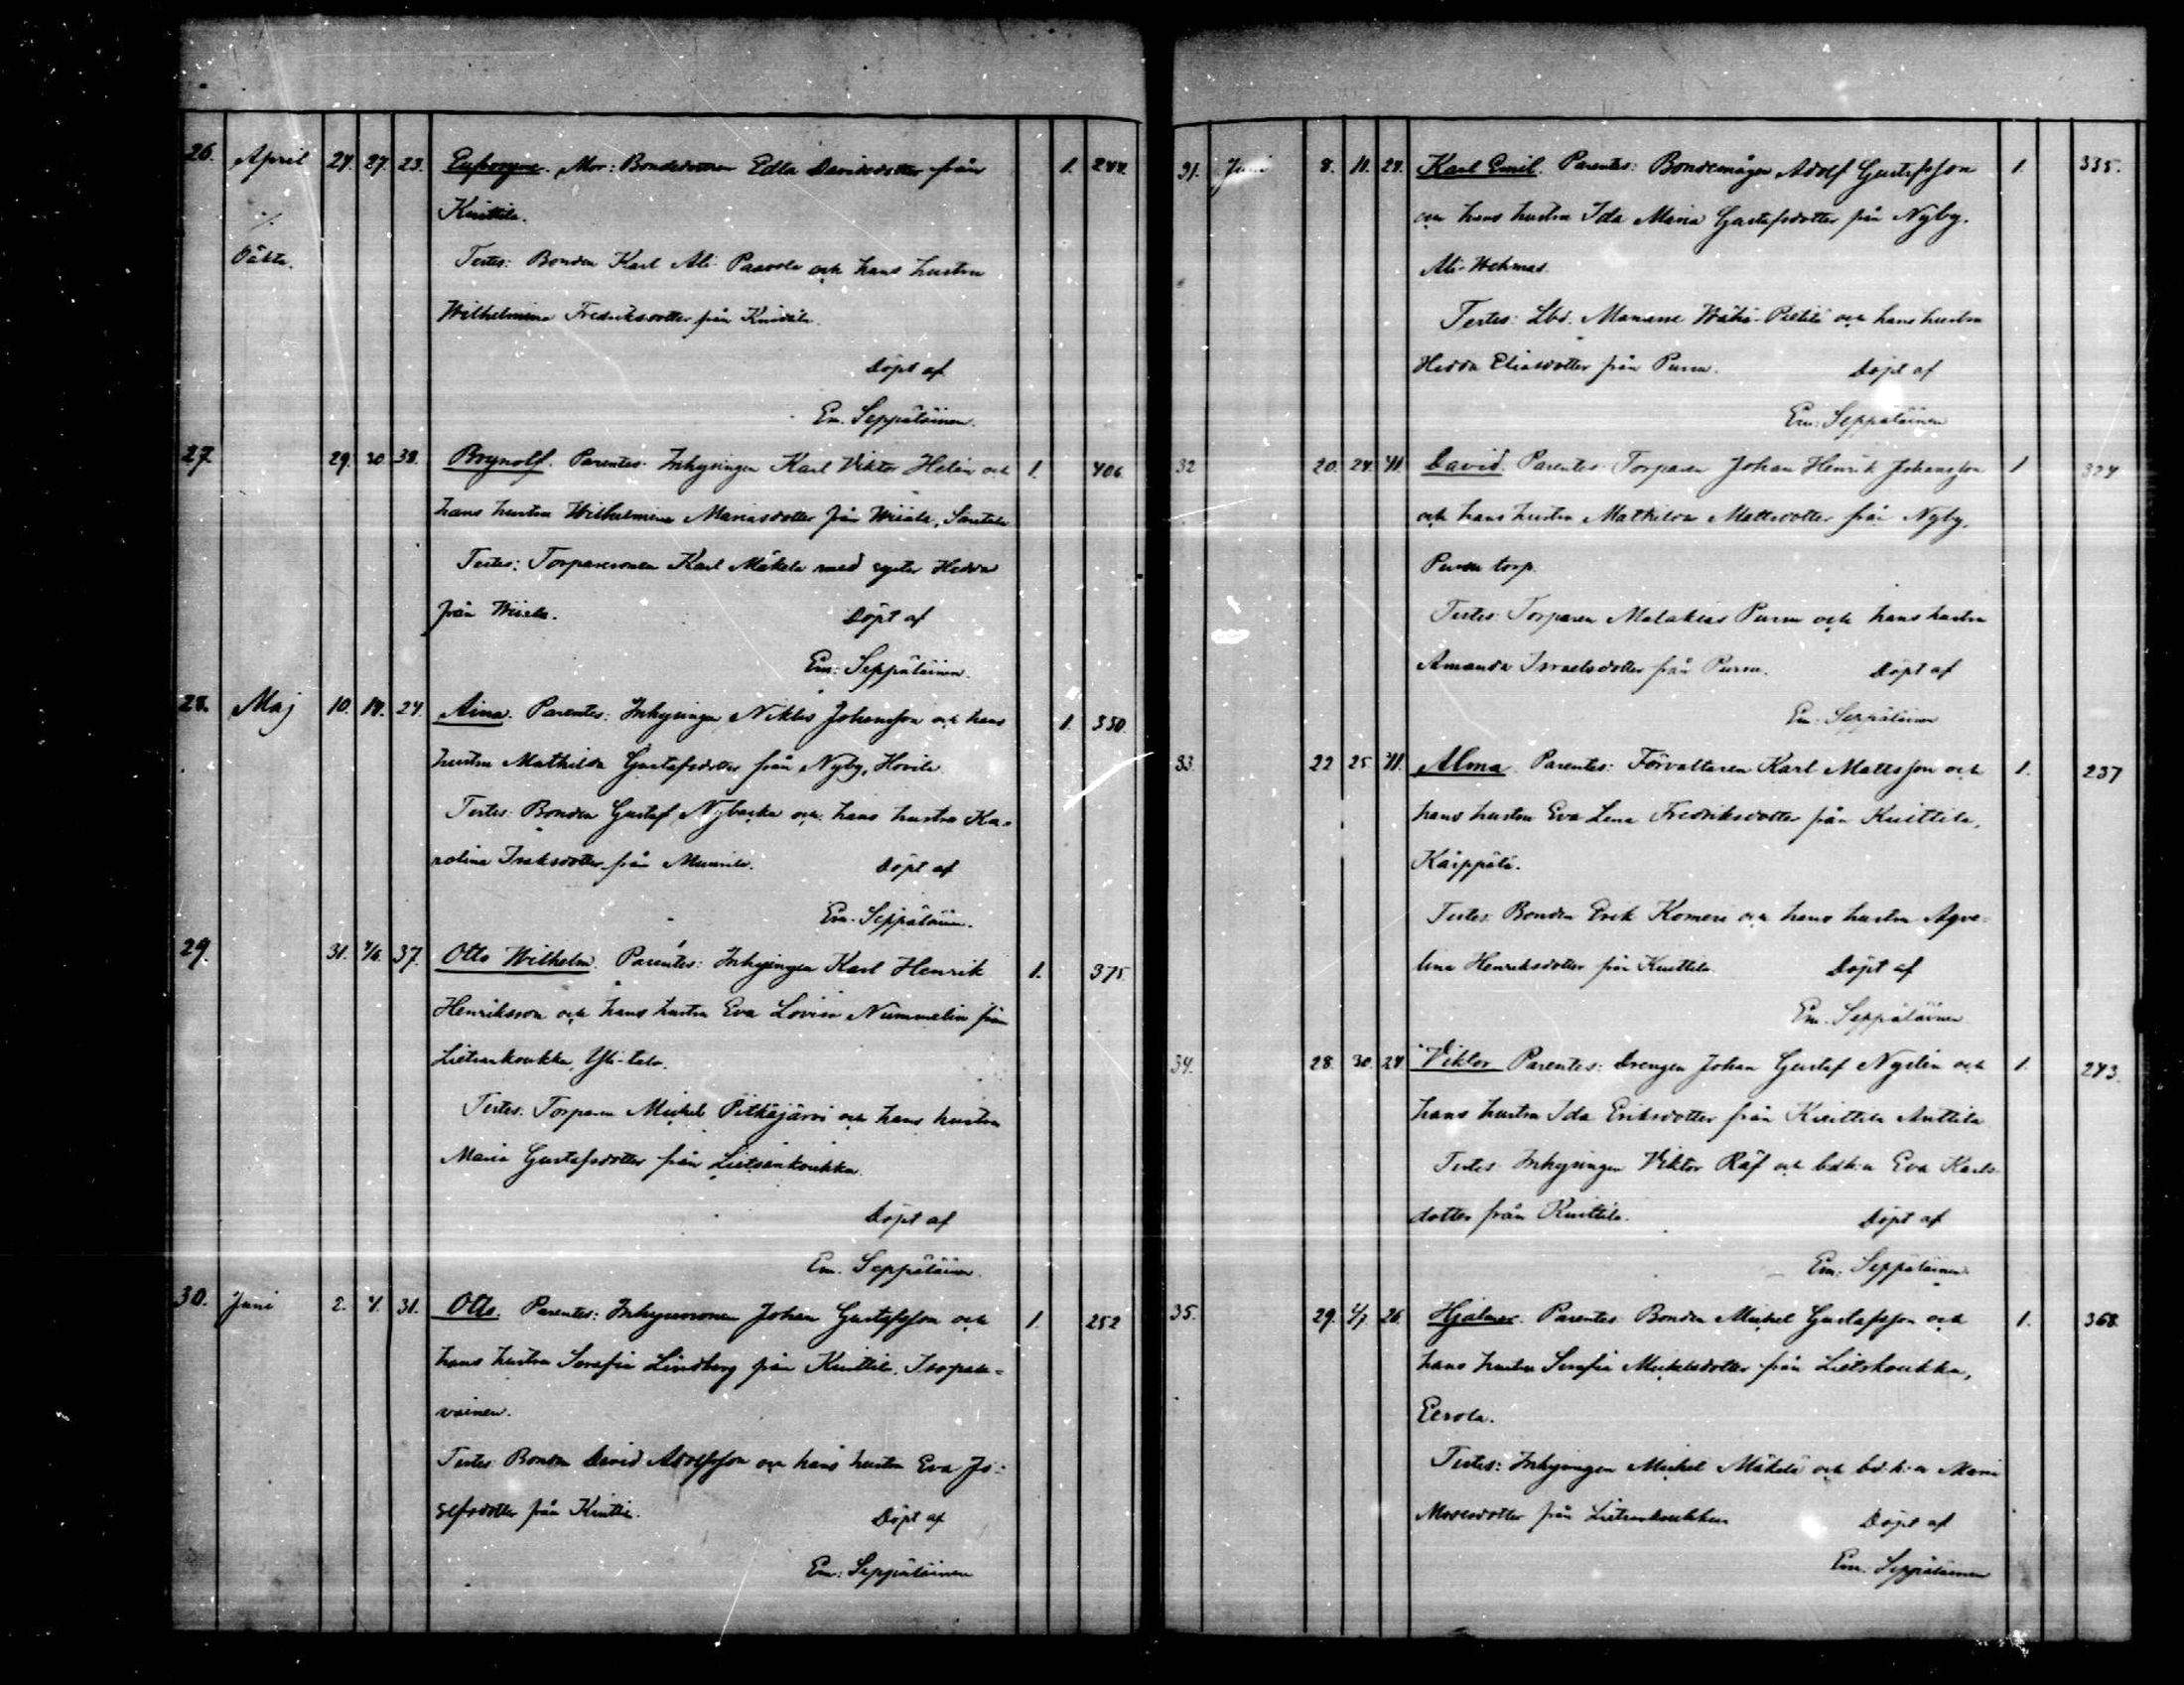 26. April 24. 27. 23. Mor: Bondedottren Edla Davidsdotter från 1. 244.
Kuittila.
Oäkta. Testes: Bonden Karl Ali-Paavola och hans hustru
Wilhelmina Fredriksdotter från Kuittila.
Döpt af
Em. Seppäläinen.
27. 29. 30. 38. Brynolf. Parentes: Inhysingen Karl Viktor Helin och 1. 406.
hans hustru Wilhelmina Mariasdotter från Wiiala,
Testes: Torparesonen Karl Mäkelä med syster Hedda
från Wiiala. Döpt af
Em. Seppäläinen.
28. Maj 10. 14. 24. Aina. Parentes: Inhysingen Niklas Johansson och hans 1. 350.
hustru Mathilda Gustafsdotter från Nyby, Hovila
Testes: Bonden Gustaf Nybacka och hans hustru Ka-
rolina Isaksdotter från Munnila. Döpt af
Em. Seppäläinen.
29. 31. 4/6. 37. Otto Wilhelm. Parentes: Inhysingen Karl Henrik 1. 375.
Henriksson och hans hustru Eva Lovisa Nummelin från
Lietsankoukka, Yli-talo.
Testes: Torparen Michel Pitkäjärvi och hans hustru
Maria Gustafsdotter från Lietsankoukka.
Döpt af
Em. Seppäläinen.
30. Juni 2. 4. 31. Otto. Parentes: Inhysesonen Johan Gustafsson och 1. 252
hans hustru Serafia Lindberg från Kuittila,
vainen.
Testes: Bonden David Adolfsson och hans hustru Eva Jo-
sefsdotter från Döpt af
Em: Seppäläinen
31. Juni 8. 11. 24. Karl Emil. Parentes: Bondemågen Adolf Gustafsson 1. 335.
och hans hustru Ida Maria Gustafsdotter från Nyby.
Ali-Wehmas.
Testes: Lbd. Manasse Wähä-Pietilä och hans hustru
Hedda Eliasdotter från Purso. Döpt af
Em: Seppäläinen
32 20. 24. 41. David. Parentes: Torparen Johan Henrik Johansson 1 324
och hans hustru Mathilda Mattsdotter från Nyby,
Purso torp.
Testes: Torparen Malakias Purso och hans hustru
Amanda Israelsdotter från Purso. Döpt af
Em. Seppäläinen
33. 22 25. 41. Alma. Parentes: Förvaltaren Karl Mattsson och 1. 237
hans hustru Eva Lena Fredriksdotter från Kuittila,
Kärppälä.
Testes: Bonden Erik Komeri och hans hustru Agve-
lina Henriksdotter från Kuittila. Döpt af
Em. Seppäläinen
34. 28. 30. 24. Viktor. Parentes: Drengen Johan Gustaf Nystén och 1. 243.
hans hustru Ida Eriksdotter från Kuittila Anttila
Testes: Inhysingen Viktor Räf och bdh:n Eva Karls-
dotter från Kuittila. Döpt af
Em. Seppäläinen.
35. 29. 2/7 26. Hjalmar. Parentes: Bonden Michel Gustafsson och 1. 368.
hans hustru Serafia Michelsdotter från Lietskoukka,
Eerola.
Testes: Inhysingen Michel Mäkelä och bd.h:n Maria
Mosesdotter från Lietsankoukka Döpt af
Em. Seppäläinen